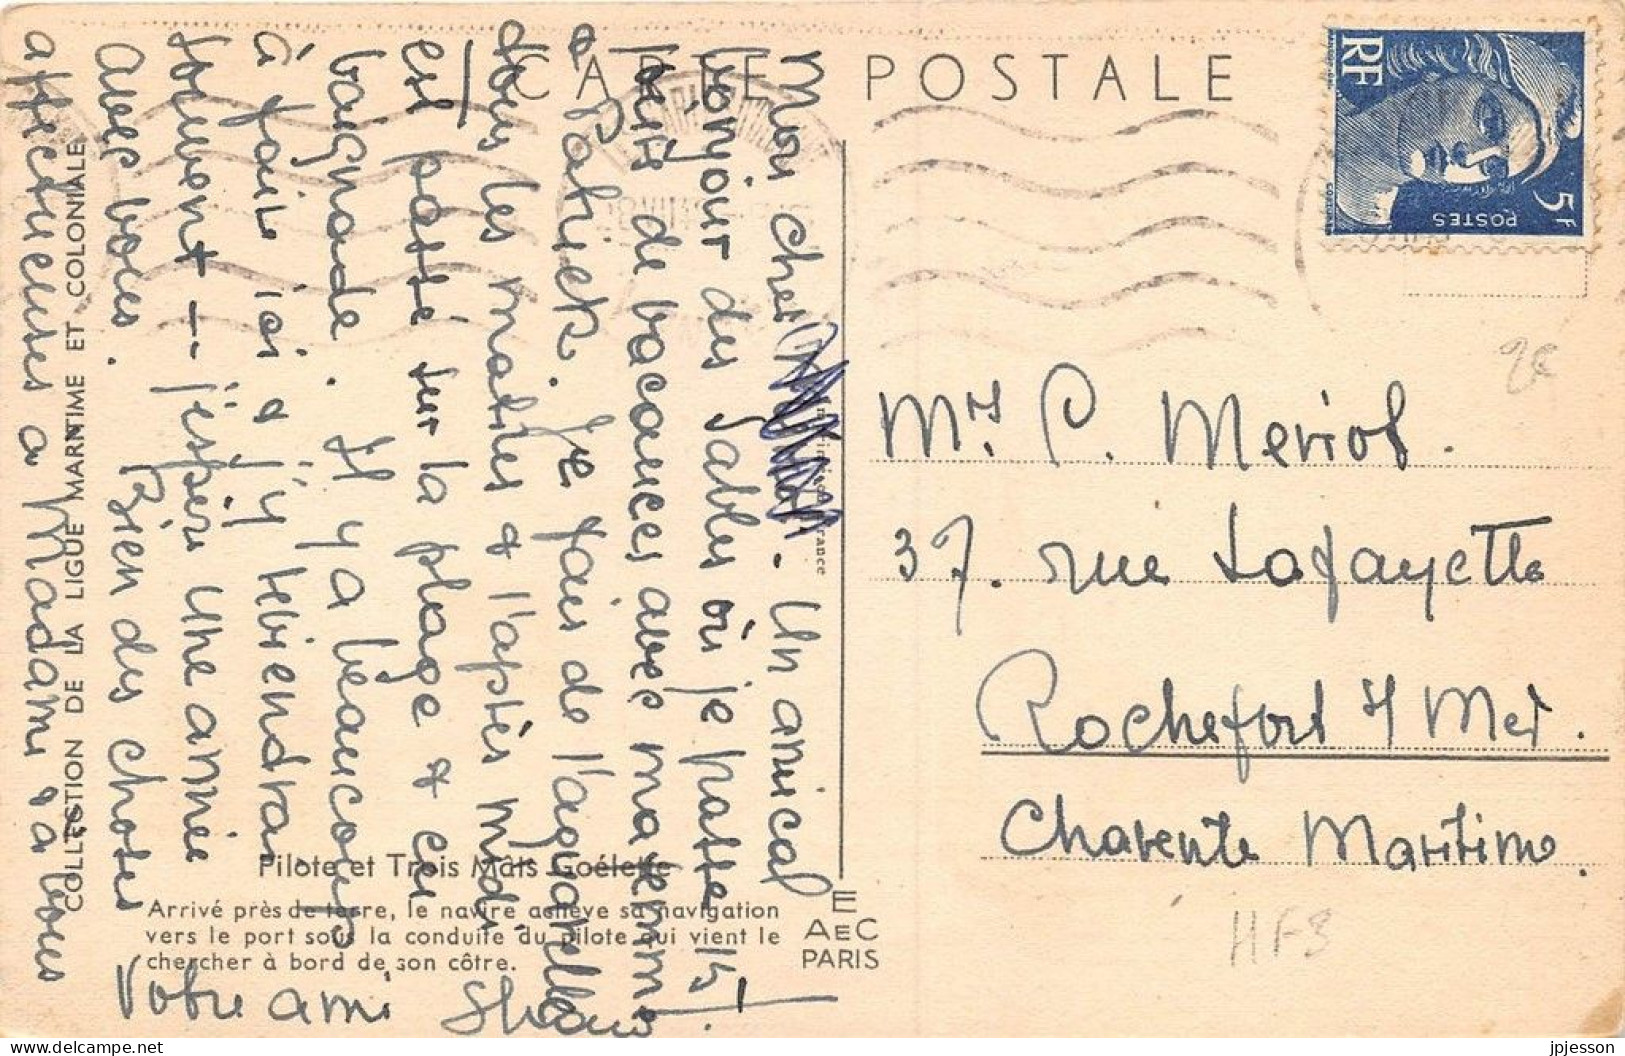 CARTE POSTALE
RF
POSTES
5F
Mon cher
- Un amical
bonjour des Sables où je passe 15
jours de vacances avec ma femme
& Patrick. Je fais de l'aquarelle
tous les matins & l'après midi
est passé sur la plage & en
baignade. Il y a beaucoup
à faire ici & j'y reviendrai
souvent -- j'espère une année
avec vous. Bien des choses
affectueuses à Madame & à vous
Votre ami
Mrs. P. Meriot.
37. rue Lafayette
Rochefort s/ Mer.
Charente Maritime
HF8
2€
COLLECTION DE LA LIGUE MARITIME ET COLONIALE
Pilote et Trois Mâts Goélette
Arrivé près de terre, le navire achève sa navigation
vers le port sous la conduite du pilote qui vient le
chercher à bord de son côtre.
E
AEC
PARIS
jpjesson